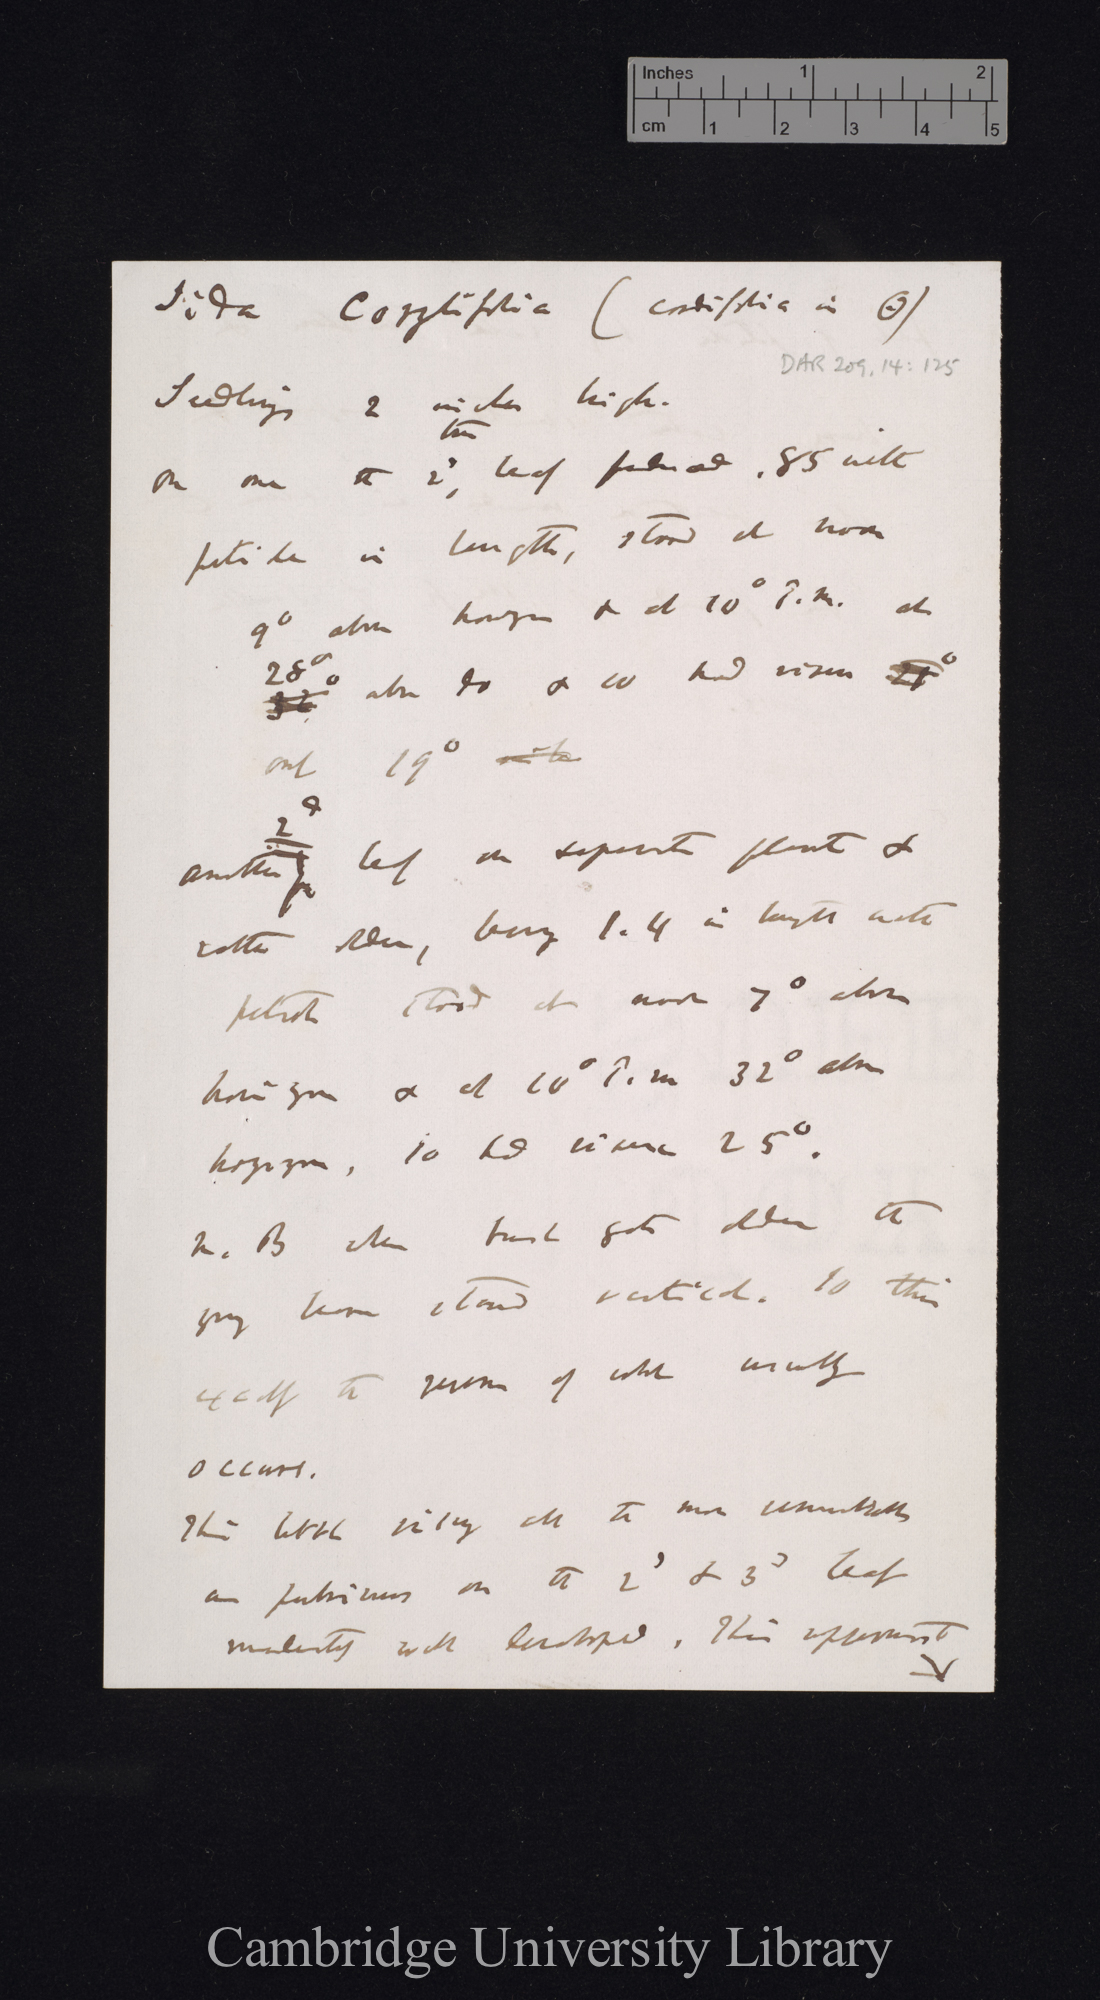 Inches 1 2
cm 1 2 3 4 5
Sida Corylifolia (cordifolia in Θ)
DAR 209.14: 125
Seedlings 2 inches high.
true
On one the 2d, leaf produced .85 with
petiole in length, stood at noon
9° above horizon & at 10° P.m. at
28°
° above do & so had risen °
only 19°
2d
another leaf on separate plant &
rather older, being 1.4 in length with
petiole stood at noon 7° above
horizon & at 10° P.m 32° above
horizon, so had risen 25°.
N.B when bush gets older the
young leaves stand vertical. So this
exactly the reverse of what usually
occurs.
This little rising all the more remarkable
as pulvinus on the 2d & 3d leaf
moderately well developed. This apparent
Cambridge University Library